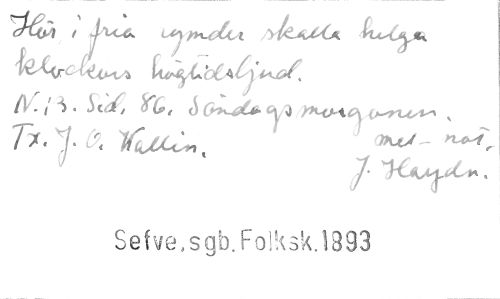 Hör, i fria rymder skalla helga
klockors högtidsljud.
N.B. Sid. 86. Söndagsmorgonen.
Tx. J. O. Wallin. mel-not.
J. Haydn.
Sefve, sgb. Folksk. 1893